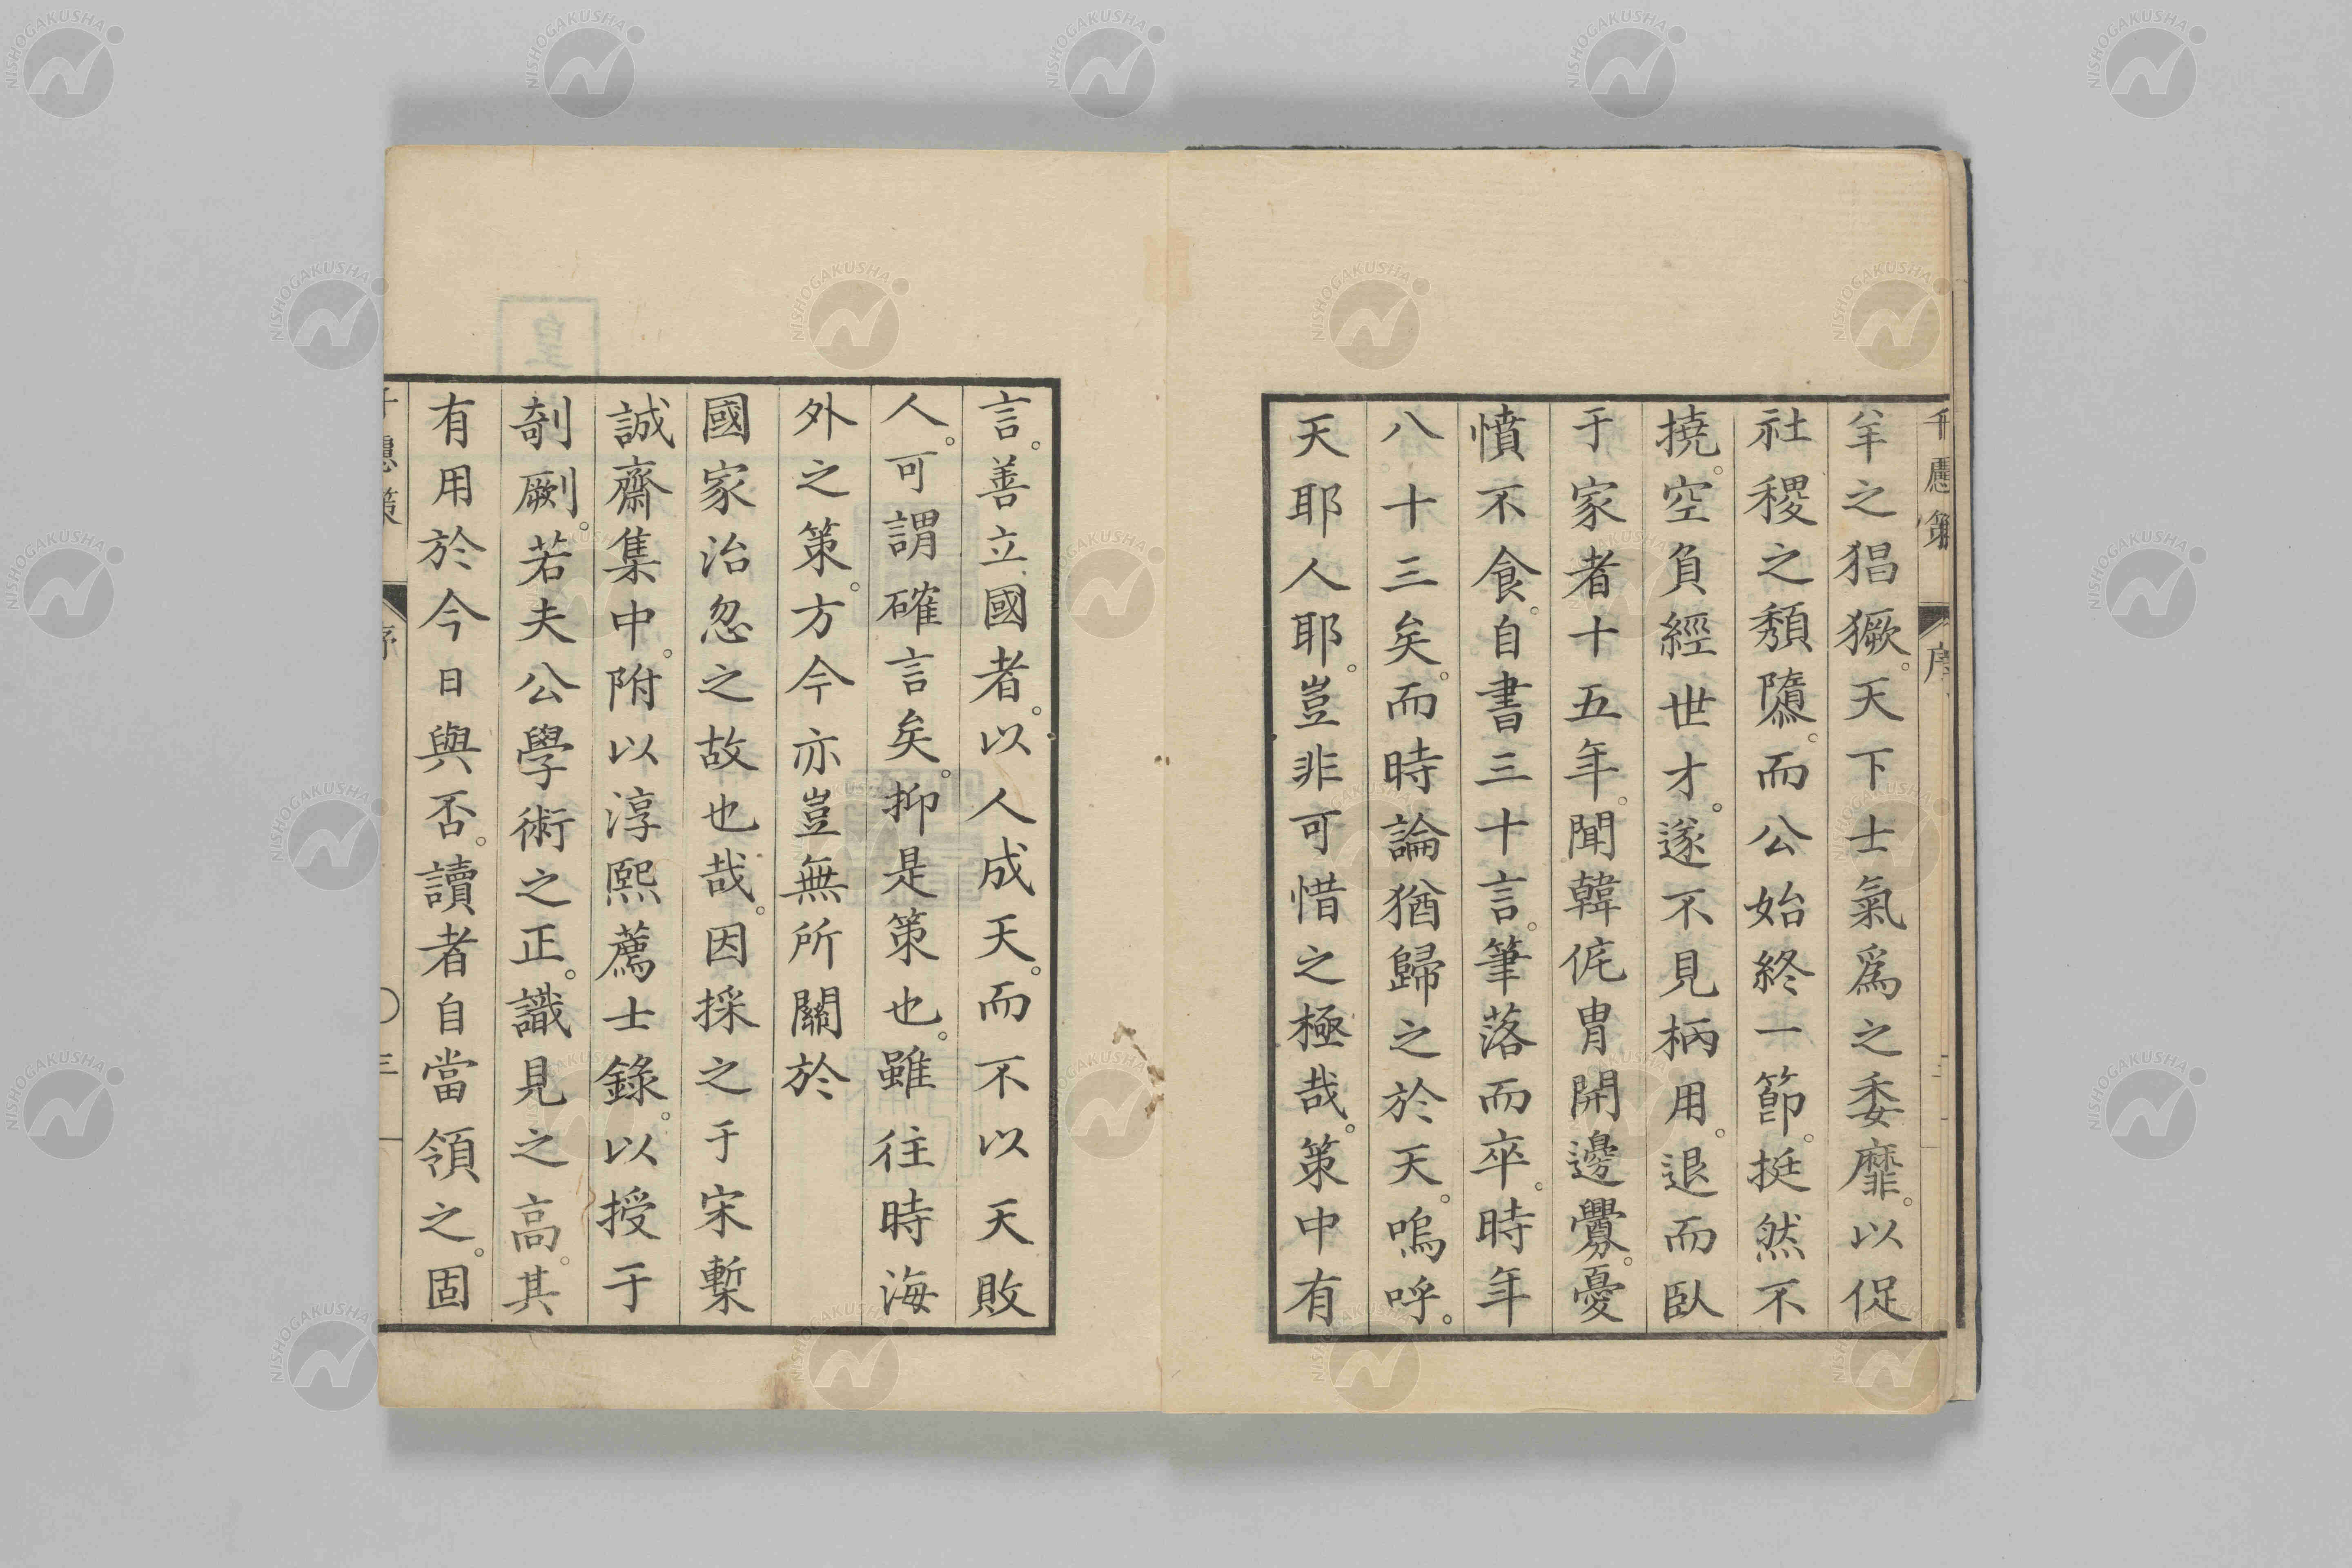 羊之猖獗。天下士氣爲之委靡。以促
社稷之頽隳。而公始終一節。挺然不
撓。空負經世才。遂不見柄用。退而臥
于家者十五年。聞韓侂冑開邊釁。憂
憤不食。自書三十言。筆落而卒。時年
八十三矣。而時論猶歸之於天。嗚呼。
天耶人耶。豈非可惜之極哉。策中有
言。善立國者。以人成天。而不以天敗
人。可謂確言矣。抑是策也。雖往時海
外之策。方今亦豈無所關於
國家治忽之故也哉。因採之于宋槧
誠齋集中。附以淳熙薦士錄。以授于
剞劂。若夫公學術之正。識見之高。其
有用於今日與否。讀者自當領之。固
千慮策
序
三
NISHOGAKUSHA